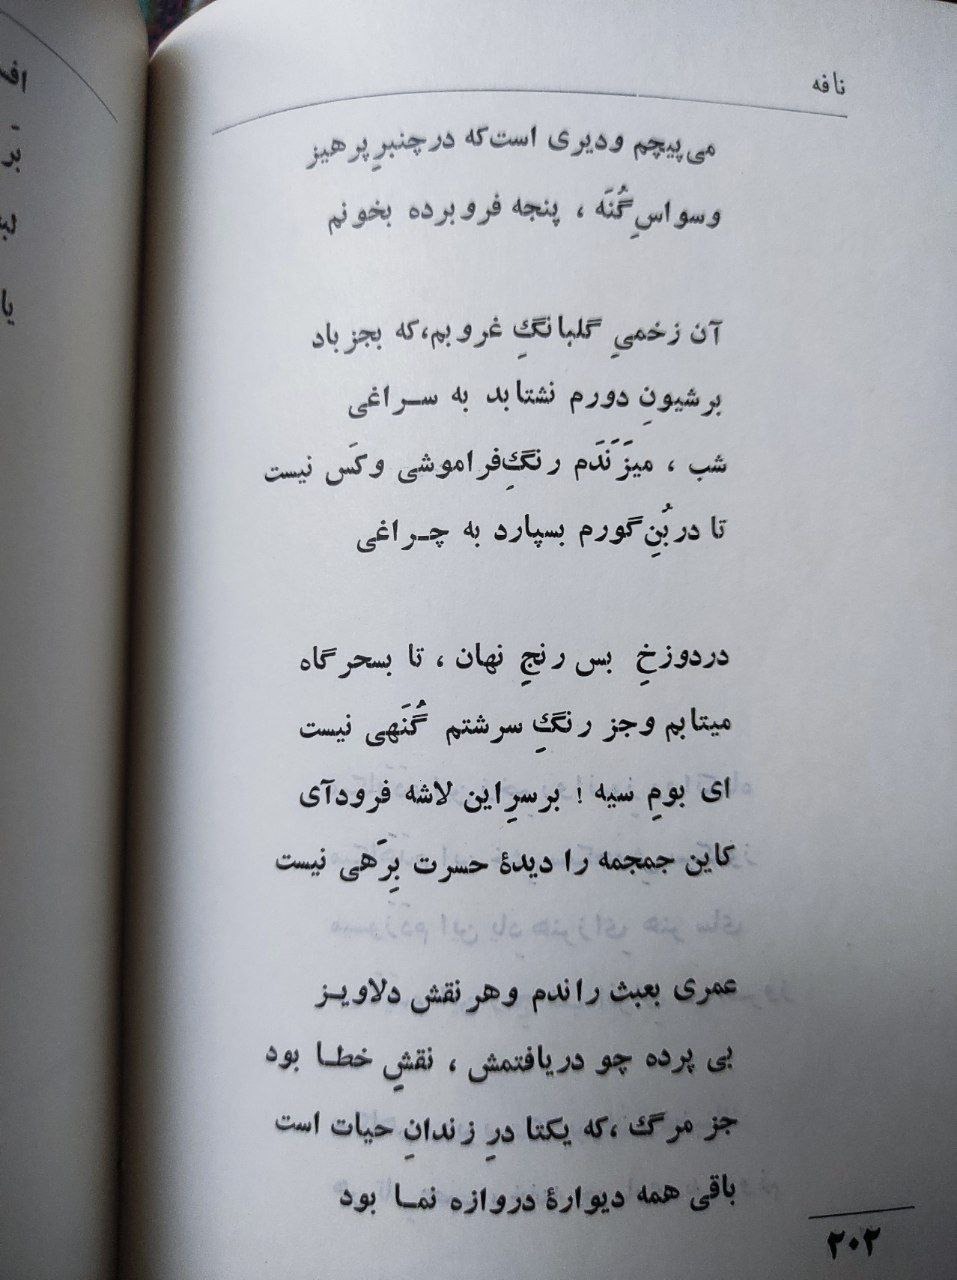 نافه
می‌پیچم و دیری است که در چنبرِ پرهیز
وسواسِ گُنَه ، پنجه فرو برده بخونم
آن زخمیِ گلبانگِ غروبم، که بجز باد
بر شیونِ دورم نشتابد به سراغی
شب ، میزَنَدم رنگِ فراموشی و کَس نیست
تا در بُنِ گورم بسپارد به چراغی
در دوزخِ بس رنجِ نهان ، تا بسحرگاه
میتابم و جز رنگِ سرشتم گُنَهی نیست
ای بومِ سیه ! بر سرِ این لاشه فرود آی
کاین جمجمه را دیدۀ حسرت بِرَهی نیست
عمری بعبث راندم و هر نقش دلاویز
بی پرده چو دریافتمش ، نقشِ خطا بود
جز مرگ ، که یکتا درِ زندانِ حیات است
باقی همه دیوارۀ دروازه نما بود
۲۰۲